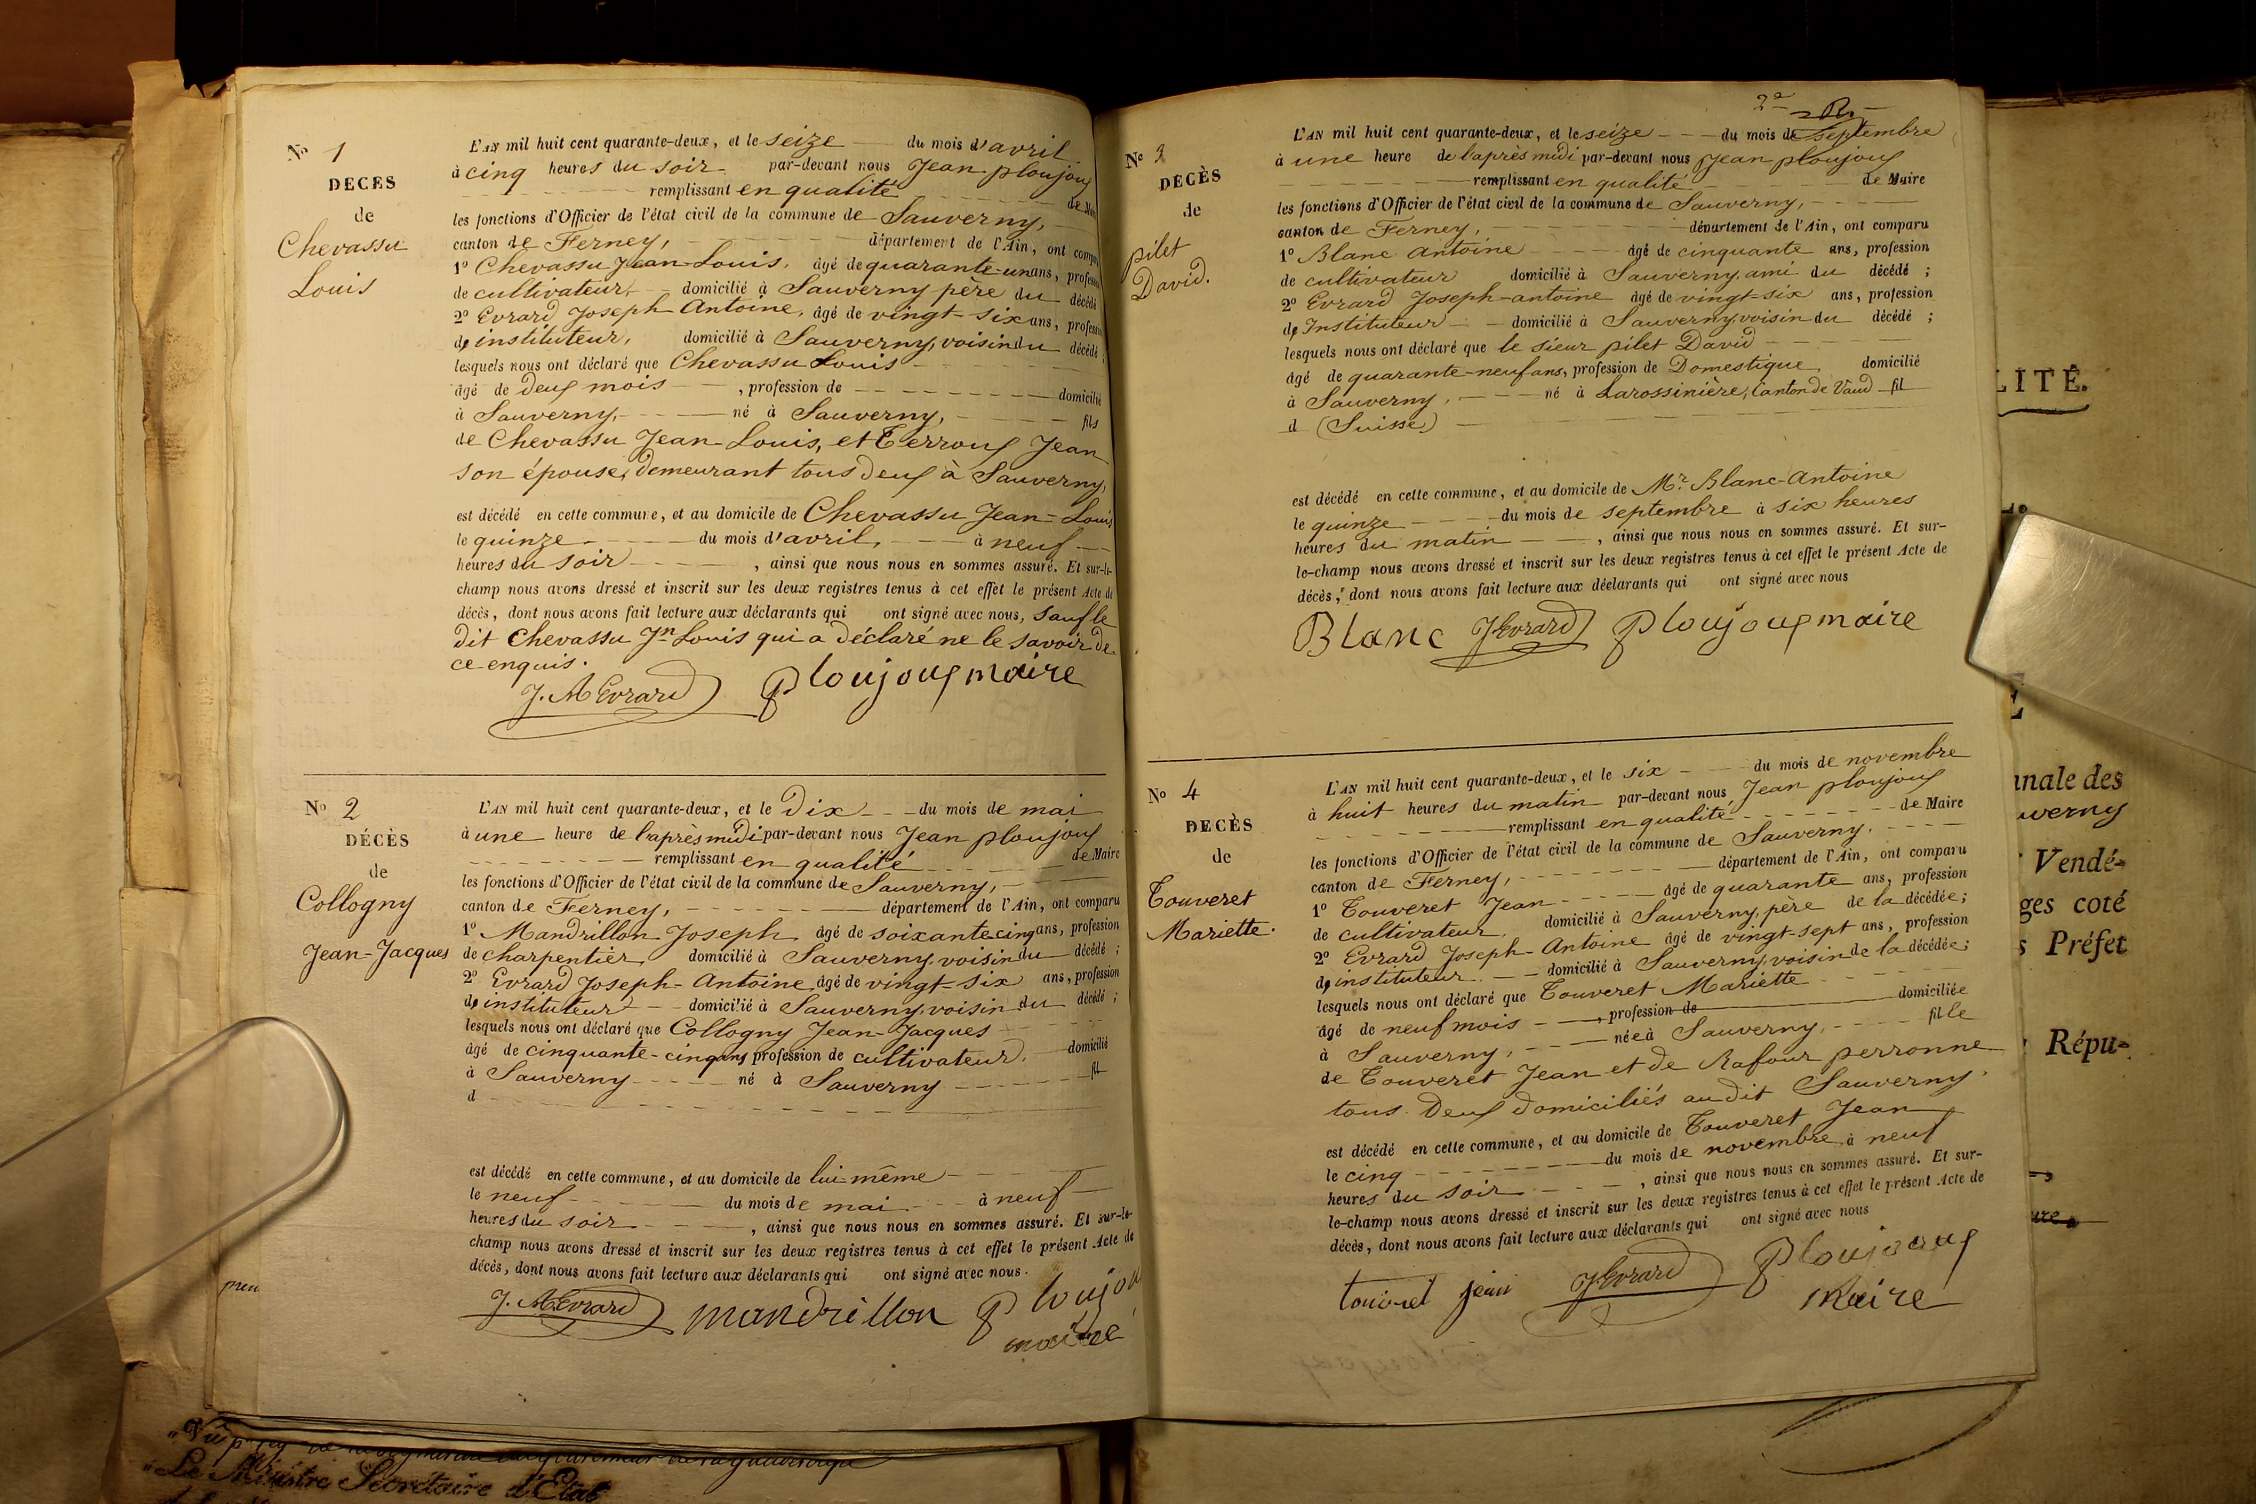 N° 1
DECES
de
Chevassu
Louis
L'AN mil huit cent quarante-deux, et le seize du mois d'avril
à cinq heures du soir par-devant nous Jean ploujoux
remplissant en qualité de Maire
les fonctions d'Officier de l'état civil de la commune de Sauverny,
canton de Ferney, département de l'Ain, ont comparu
1° Chevassu Jean-Louis, âgé de quarante-un ans, profession
de cultivateur, domicilié à Sauverny père du décédé
2° Evrard Joseph Antoine, âgé de vingt-six ans, profession
de instituteur, domicilié à Sauverny, voisin du décédé ;
lesquels nous ont déclaré que Chevassu Louis
âgé de deux mois , profession de domicilié
à Sauverny, né à Sauverny, fils
de Chevassu Jean-Louis, et Terroux Jean
son épouse, demeurant tous deux à Sauverny,
est décédé en cette commune, et au domicile de Chevassu Jean-Louis
le quinze du mois d'avril, à neuf
heures du soir , ainsi que nous nous en sommes assuré. Et sur-le-
champ nous avons dressé et inscrit sur les deux registres tenus à cet effet le présent Acte de
décès, dont nous avons fait lecture aux déclarants qui ont signé avec nous, sauf le
dit Chevassu Jn Louis qui a déclaré ne le savoir de
ce enquis.
J. A Evrard Ploujoux maire
N° 2
DÉCÈS
de
Collogny
Jean-Jacques
L'AN mil huit cent quarante-deux, et le Dix du mois de mai
à une heure de l'après midi par-devant nous Jean ploujoux
remplissant en qualité de Maire
les fonctions d'Officier de l'état civil de la commune de Sauverny,
canton de Ferney, département de l'Ain, ont comparu
1° Mandrillon Joseph âgé de soixante cinq ans, profession
de charpentier, domicilié à Sauverny, voisin du décédé ;
2° Evrard Joseph-Antoine, âgé de vingt-six ans, profession
de instituteur domicilié à Sauverny, voisin du décédé ;
lesquels nous ont déclaré que Collogny Jean-Jacques
âgé de cinquante-cinq ans profession de cultivateur, domicilié
à Sauverny né à Sauverny fil
d
est décédé en cette commune, et au domicile de lui-même
le neuf du mois de mai à neuf
heures du soir , ainsi que nous nous en sommes assuré. Et sur-le-
champ nous avons dressé et inscrit sur les deux registres tenus à cet effet le présent Acte de
décès, dont nous avons fait lecture aux déclarants qui ont signé avec nous.
J. A Evrard mandrillon Ploujou
maire
2e
N° 3
DÉCÈS
de
pilet
David.
L'AN mil huit cent quarante-deux, et le seize du mois de septembre
à une heure de l'après midi par-devant nous Jean ploujoux
remplissant en qualité de Maire
les fonctions d'Officier de l'état civil de la commune de Sauverny,
canton de Ferney, département de l'Ain, ont comparu
1° Blanc Antoine âgé de cinquante ans, profession
de cultivateur domicilié à Sauverny, ami du décédé ;
2° Evrard Joseph-antoine âgé de vingt-six ans, profession
de Instituteur domicilié à Sauverny, voisin du décédé ;
lesquels nous ont déclaré que le sieur pilet David
âgé de quarante-neuf ans, profession de Domestique domicilié
à Sauverny, né à Larossinière, Canton de Vaud fil
d (Suisse)
est décédé en cette commune, et au domicile de Mr Blanc-Antoine
le quinze du mois de septembre à six heures
heures du matin , ainsi que nous nous en sommes assuré. Et sur-
le-champ nous avons dressé et inscrit sur les deux registres tenus à cet effet le présent Acte de
décès, dont nous avons fait lecture aux déclarants qui ont signé avec nous
Blanc J Evrard Ploujoux maire
N° 4
DECÈS
de
Touveret
Mariette.
L'AN mil huit cent quarante-deux, et le six du mois de novembre
à huit heures du matin par-devant nous Jean ploujoux
remplissant en qualité de Maire
les fonctions d'Officier de l'état civil de la commune de Sauverny,
canton de Ferney, département de l'Ain, ont comparu
1° Touveret Jean âgé de quarante ans, profession
de cultivateur, domicilié à Sauverny, père de la décédée ;
2° Evrard Joseph-Antoine âgé de vingt-sept ans, profession
de instituteur domicilié à Sauverny, voisin de la décédée ;
lesquels nous ont déclaré que Touveret Mariette
âgé de neuf mois , profession de domiciliée
à Sauverny, née à Sauverny, fille
de Touveret Jean et de Rafour perronne
tous deux domiciliés audit Sauverny.
est décédé en cette commune, et au domicile de Touveret Jean
le cinq du mois de novembre, à neuf
heures du soir , ainsi que nous nous en sommes assuré. Et sur-
le-champ nous avons dressé et inscrit sur les deux registres tenus à cet effet le présent Acte de
décès, dont nous avons fait lecture aux déclarants qui ont signé avec nous
touvret jean J Evrard Ploujoux
Maire
LITÉ.
nale des
uverny
Vendé-
ges coté
s Préfet
Répu-
"Le Ministre Secrétaire d'Etat